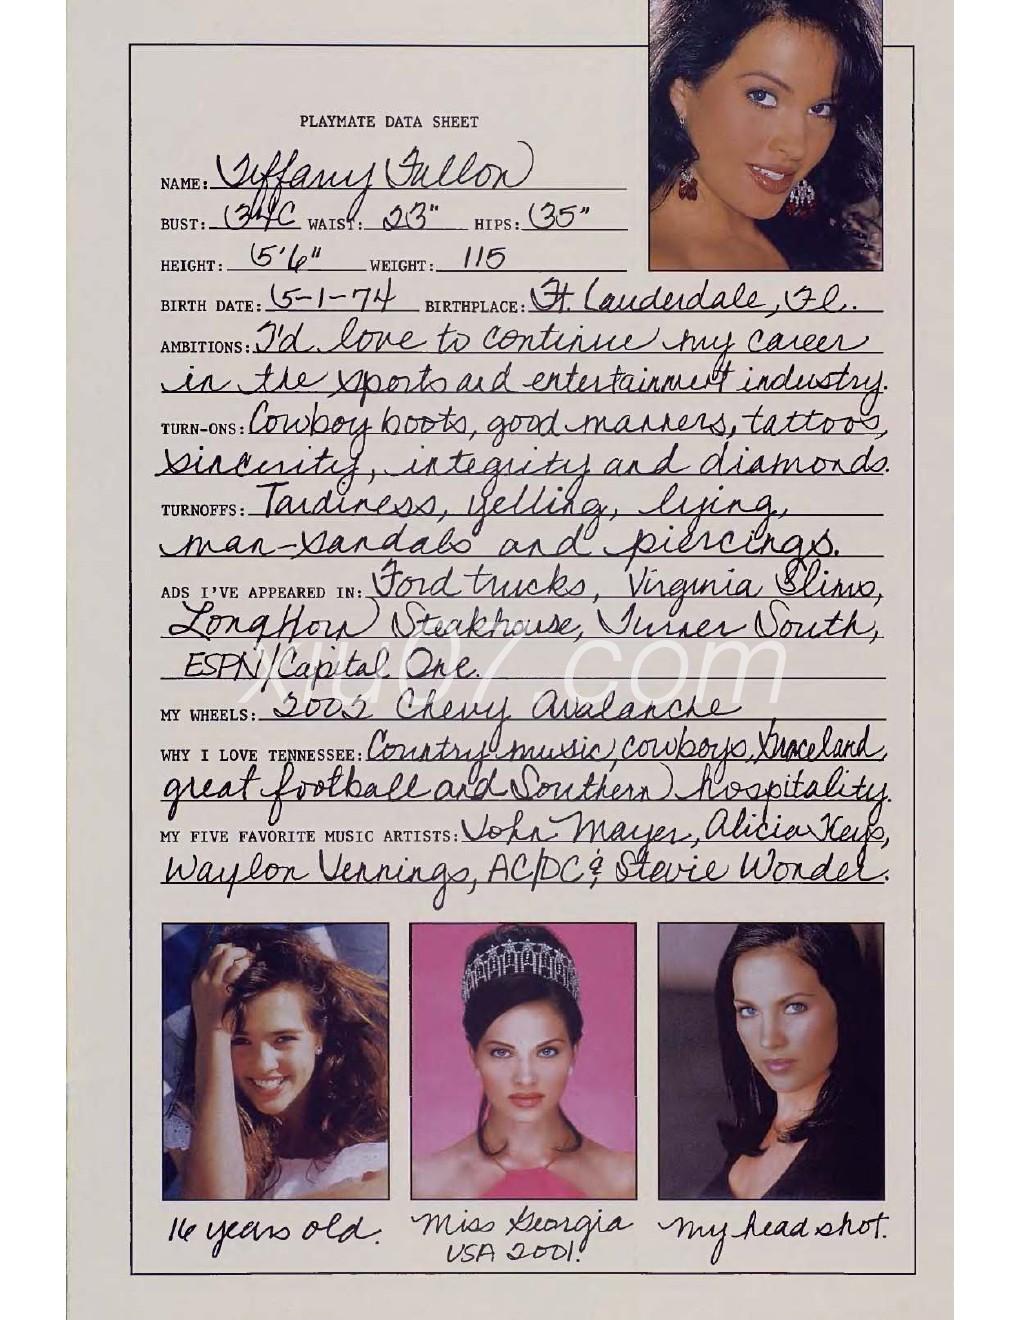 PLAYMATE DATA SHEET
NAME: Tiffany Fallon
BUST: 34C WAIST: 23" HIPS: 35"
HEIGHT: 5'6" WEIGHT: 115
BIRTH DATE: 5-1-74 BIRTHPLACE: Ft. Lauderdale, Fl.
AMBITIONS: I'd love to continue my career
in the sports and entertainment industry.
TURN-ONS: Cowboy boots, good manners, tattoos,
sincerity, integrity and diamonds.
TURNOFFS: Tardiness, yelling, lying,
man-sandals and piercings.
ADS I'VE APPEARED IN: Ford trucks, Virginia Slims,
LongHorn Steakhouse, Turner South,
ESPN, Capital One.
xiu07.com
MY WHEELS: 2002 Chevy Avalanche
WHY I LOVE TENNESSEE: Country music, cowboys, Graceland,
great football and Southern hospitality.
MY FIVE FAVORITE MUSIC ARTISTS: John Mayer, Alicia Keys,
Waylon Jennings, AC/DC & Stevie Wonder.
16 years old.
Miss Georgia
USA 2001!
My head shot.